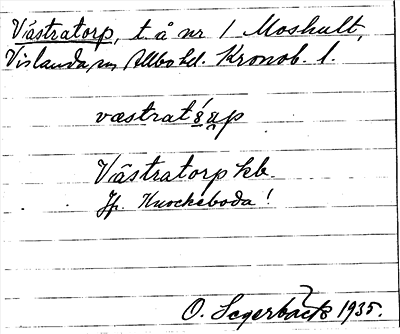 Västratorp, t. å nr 1 Moshult,
Vislanda sn Allbo hd. Kronob. l.
væstrat
Västratorp kb.
Jfr. Knockaboda!
O. Segerbäck 1935.